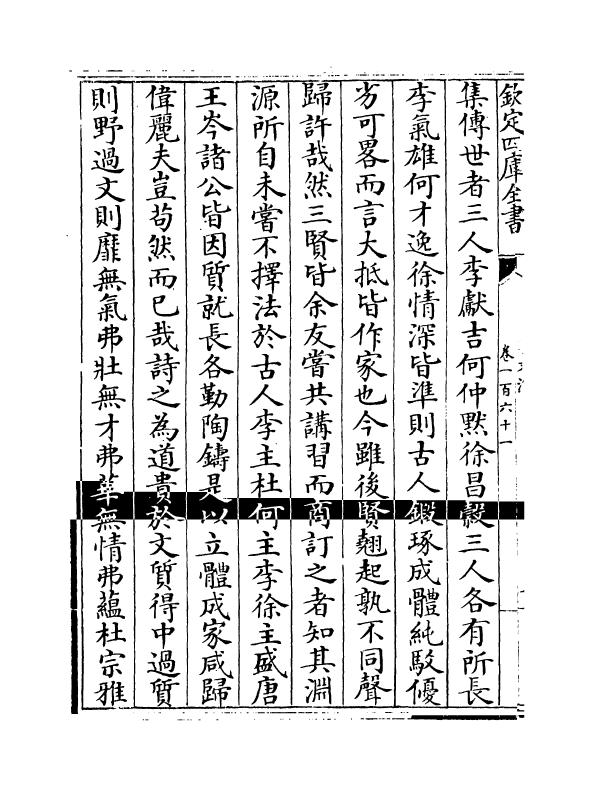 欽定四庫全書
卷一百六十一
集傳世者三人李獻吉何仲黙徐昌糓三人各有所長
李氣雄何才逸徐情深皆準則古人鍛琢成體純駁優
劣可畧而言大抵皆作家也今雖後賢翹起孰不同聲
歸許哉然三賢皆余友嘗共講習而商訂之者知其淵
源所自未嘗不擇法於古人李主杜何主李徐主盛唐
王岑諸公皆因質就長各勤陶鑄是以立體成家咸歸
偉麗夫豈苟然而已哉詩之為道貴於文質得中過質
則野過文則靡無氣弗壯無才弗華無情弗蘊杜宗雅